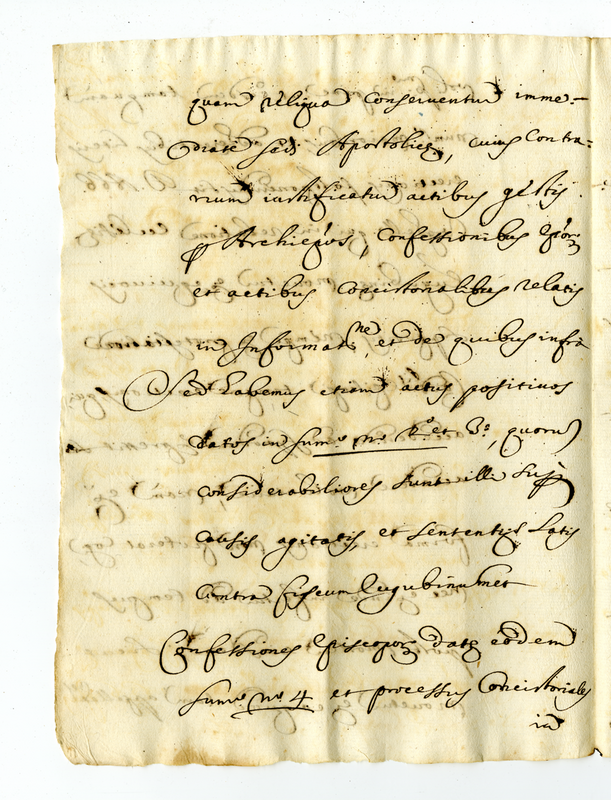 quam reliqua conserventur imme-
diate sedi Apostolicę, cuius contra-
rium iustificatur actibus gestis
p Archiepũs, Confessionibus Epõr
et actibus Concistorialibus relatis
in Informat.ne, et de quibus infra
Sed habemus etiam actus positivos
datos in sum.o n.o 2.o et 3.o, quorum
considerabiliores sunt illi sup
causis agitatis, et sententijs latis
contra fiscum Eugubinum et
Confessiones Episcopor datę eodem
sum.o n.o 4. et processus Concistoriales
in